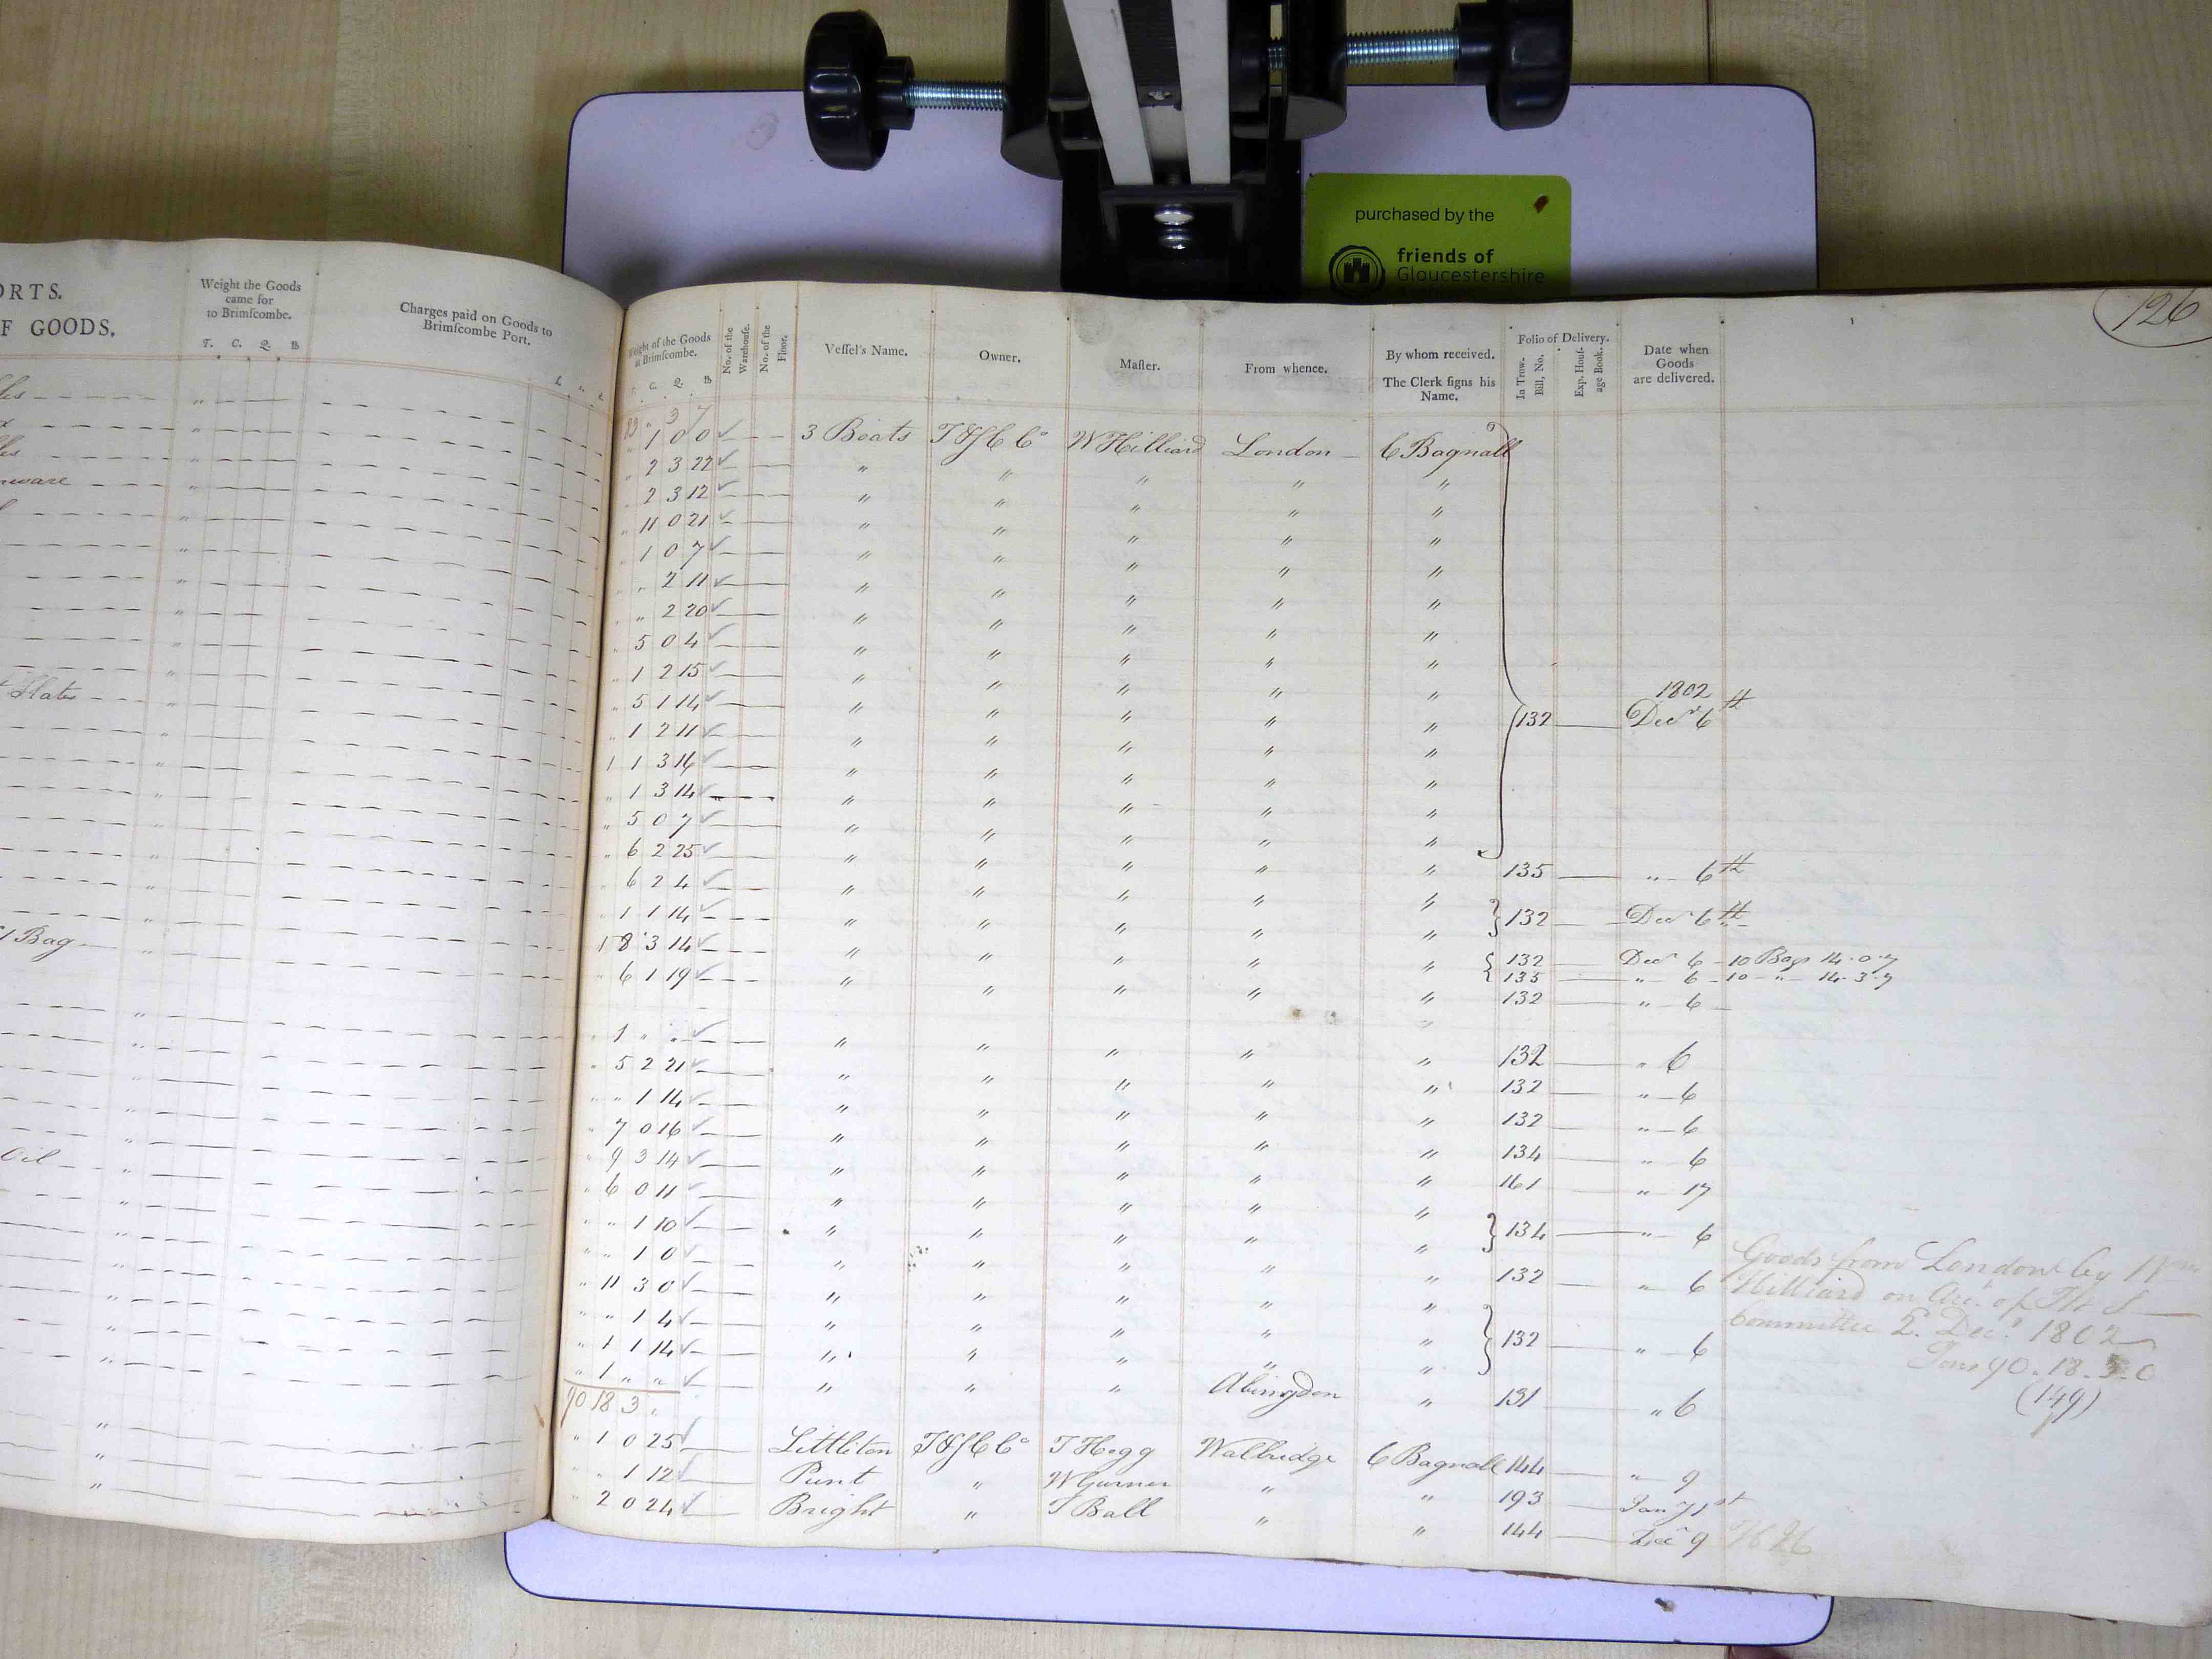 purchased by the
friends of
Gloucestershire
ORTS.
F GOODS.
Weight the Goods
came for
to Brimſcombe.
T. C. Q. lb
Charges paid on Goods to
Brimſcombe Port.
ware
Slates
1 Bag
Oil
126
Weight of the Goods
at Brimſcombe.
T. C. Q. lb
No. of the
Warehouſe.
No. of the
Floor.
Veſſel's Name.
Owner.
Maſter.
From whence.
By whom received.
The Clerk ſigns his
Name.
Folio of Delivery.
In Trow.
Bill, No.
Exp. Houſ-
age Book.
Date when
Goods
are delivered.
83 " 3 7
" 1 0 0 3 Boats T&SC Co W Hilliard London C Bagnall
" 2 3 22 " " " " "
" 2 3 12 " " " " "
" 11 0 21 " " " " "
" 1 0 7 " " " " "
" " 2 11 " " " " "
" " 2 20 " " " " "
" 5 0 4 " " " " "
" 1 2 15 " " " " "
" 5 1 14 " " " " " 132 1802 Decr 6th
" 1 2 11 " " " " "
1 1 3 16 " " " " "
" 1 3 14 " " " " "
" 5 0 7 " " " " "
" 6 2 25 " " " " " 135 " 6th
" 6 2 4 " " " " "
" 1 1 14 " " " " " 132 Decr 6th
1 8 3 14 " " " " " 132 Decr 6 - 10 Bags 14.0.7
135 " 6 - 10 " 14.3.7
" 6 1 19 " " " " " 132 " 6
" 1 " " " " " " " 132 " 6
" 5 2 21 " " " " " 132 " 6
" " 1 14 " " " " " 132 " 6
" 7 0 16 " " " " " 134 " 6
" 9 3 14 " " " " " 161 " 17
" 6 0 11 " " " " "
" " 1 10 " " " " " 134 " 6
" " 1 0 " " " " " 132 " 6
" 11 3 0 " " " " "
" " 1 4 " " " " " 132 " 6
" 1 1 14 " " " " "
" 1 " " " " " Abingdon " 131 " 6
90 18 3 "
" 1 0 25 Littleton T&SC Co T Hogg Walbridge C Bagnall 144 " 9
" " 1 12 Punt " W Gurner " " 193 Jany 1st
" 2 0 24 Bright " T Ball " " 144 Decr 9
Goods from London by Wm
Hilliard on Acct. of T & S
Committee 2. Decr. 1802
Tons 90.18.3.0
(149)